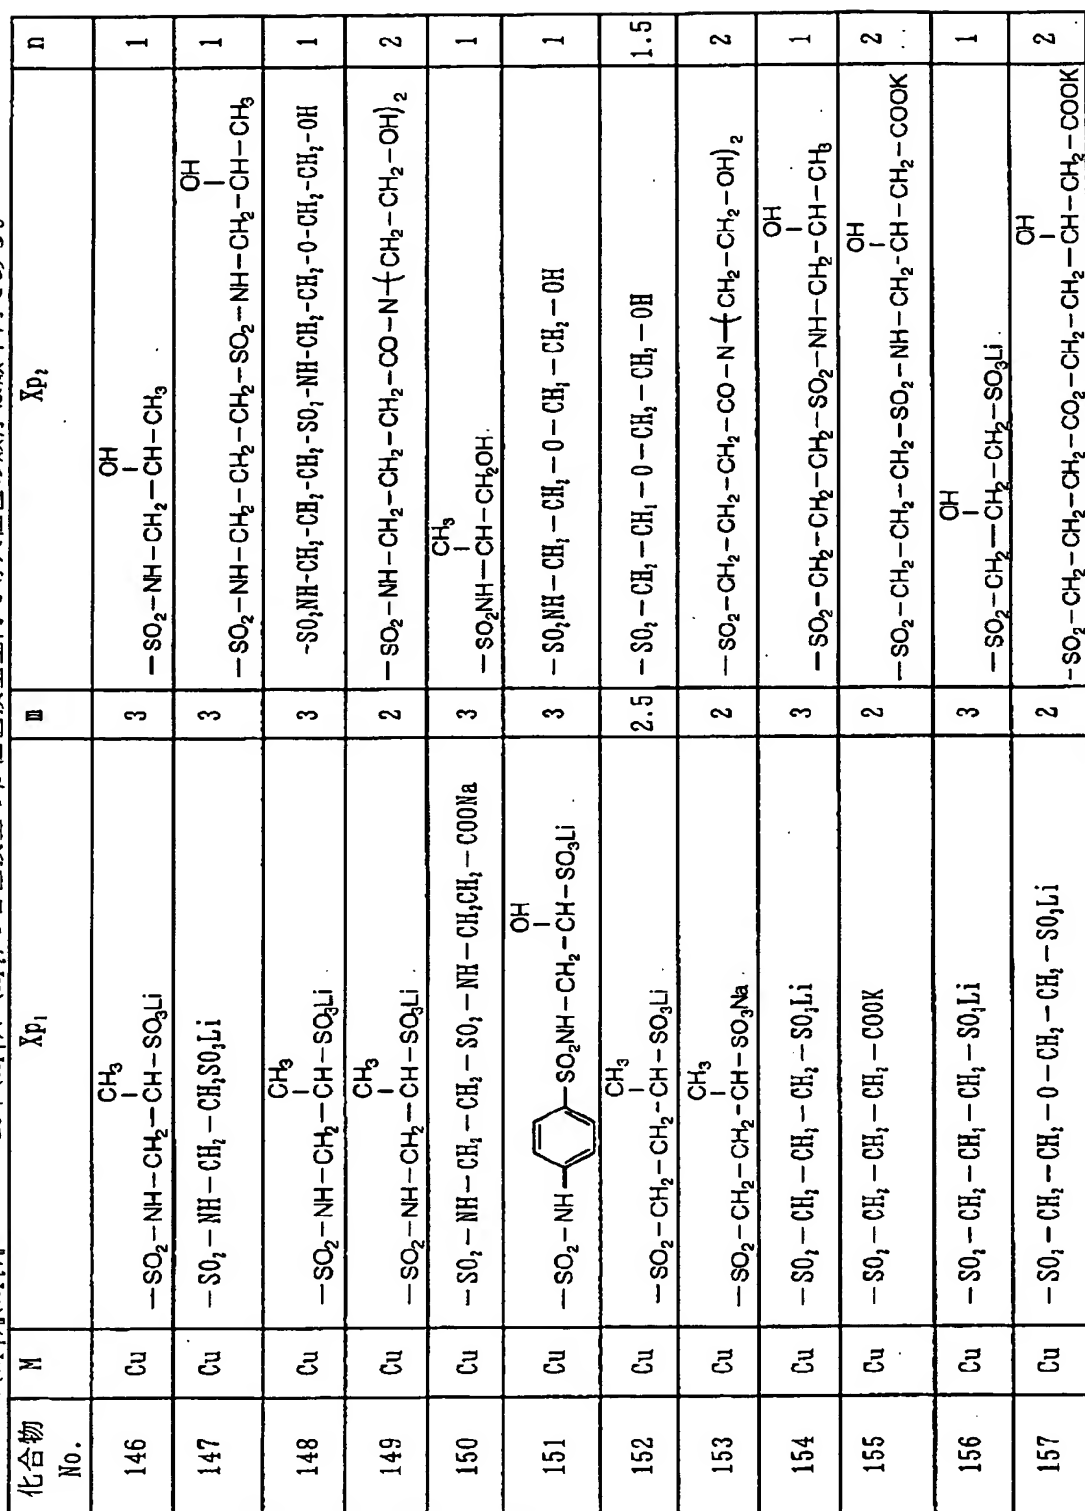 化合物 No. M Xp₁ m Xp₂ n
146 Cu —SO₂—NH—CH₂—CH(CH₃)—SO₃Li 3 —SO₂—NH—CH₂—CH(OH)—CH₃ 1
147 Cu —SO₂—NH—CH₂—CH₂SO₃Li 3 —SO₂—NH—CH₂—CH₂—CH₂—SO₂—NH—CH₂—CH(OH)—CH₃ 1
148 Cu —SO₂—NH—CH₂—CH(CH₃)—SO₃Li 3 -SO₂NH-CH₂-CH₂-CH₂-SO₂-NH-CH₂-CH₂-O-CH₂-CH₂-OH 1
149 Cu —SO₂—NH—CH₂—CH(CH₃)—SO₃Li 2 —SO₂—NH—CH₂—CH₂—CH₂—CO—N—(CH₂—CH₂—OH)₂ 2
150 Cu —SO₂—NH—CH₂—CH₂—SO₂—NH—CH₂CH₂—COONa 3 —SO₂NH—CH(CH₃)—CH₂OH 1
151 Cu —SO₂—NH— —SO₂NH—CH₂—CH(OH)—SO₃Li 3 —SO₂NH—CH₂—CH₂—O—CH₂—CH₂—OH 1
152 Cu —SO₂—CH₂—CH₂—CH(CH₃)—SO₃Li 2.5 —SO₂—CH₂—CH₂—O—CH₂—CH₂—OH 1.5
153 Cu —SO₂—CH₂—CH₂—CH(CH₃)—SO₃Na 2 —SO₂—CH₂—CH₂—CH₂—CO—N—(CH₂—CH₂—OH)₂ 2
154 Cu —SO₂—CH₂—CH₂—CH₂—SO₃Li 3 —SO₂—CH₂—CH₂—CH₂—SO₂—NH—CH₂—CH(OH)—CH₃ 1
155 Cu —SO₂—CH₂—CH₂—CH₂—COOK 2 —SO₂—CH₂—CH₂—CH₂—SO₂—NH—CH₂—CH(OH)—CH₂—COOK 2
156 Cu —SO₂—CH₂—CH₂—CH₂—SO₃Li 3 —SO₂—CH₂—CH₂(OH)—CH₂—SO₃Li 1
157 Cu —SO₂—CH₂—CH₂—O—CH₂—CH₂—SO₃Li 2 —SO₂—CH₂—CH₂—CH₂—CO₂—CH₂—CH₂—CH(OH)—CH₂—COOK 2